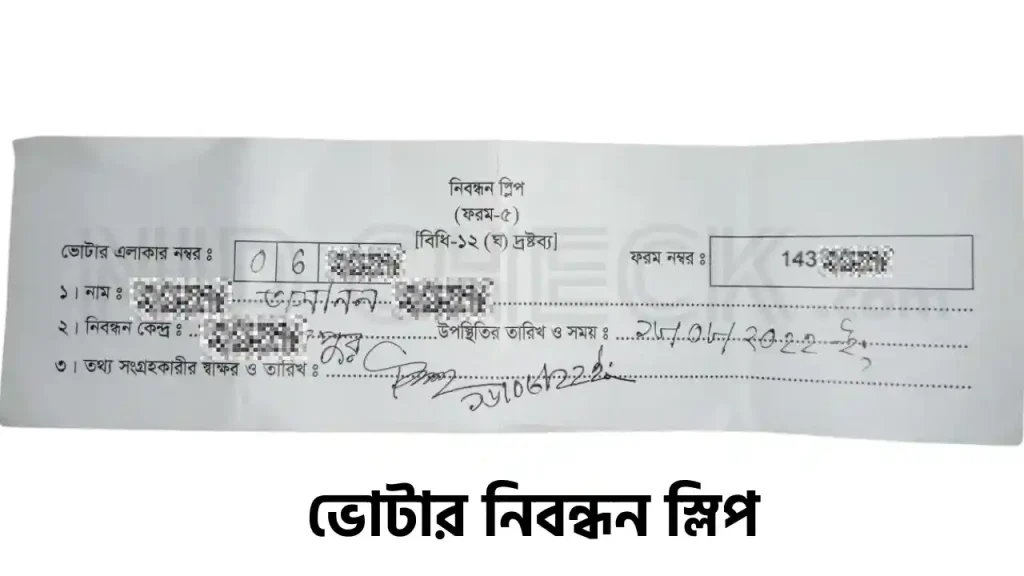 নিবন্ধন স্লিপ
(ফরম-৫)
[বিধি-১২ (ঘ) দ্রষ্টব্য]
ভোটার এলাকার নম্বর ঃ 0 6
ফরম নম্বর ঃ 143
১। নাম ঃ
২। নিবন্ধন কেন্দ্র ঃ পুর উপস্থিতির তারিখ ও সময় ঃ
৩। তথ্য সংগ্রহকারীর স্বাক্ষর ও তারিখ ঃ
NID CHECK
.com
ভোটার নিবন্ধন স্লিপ